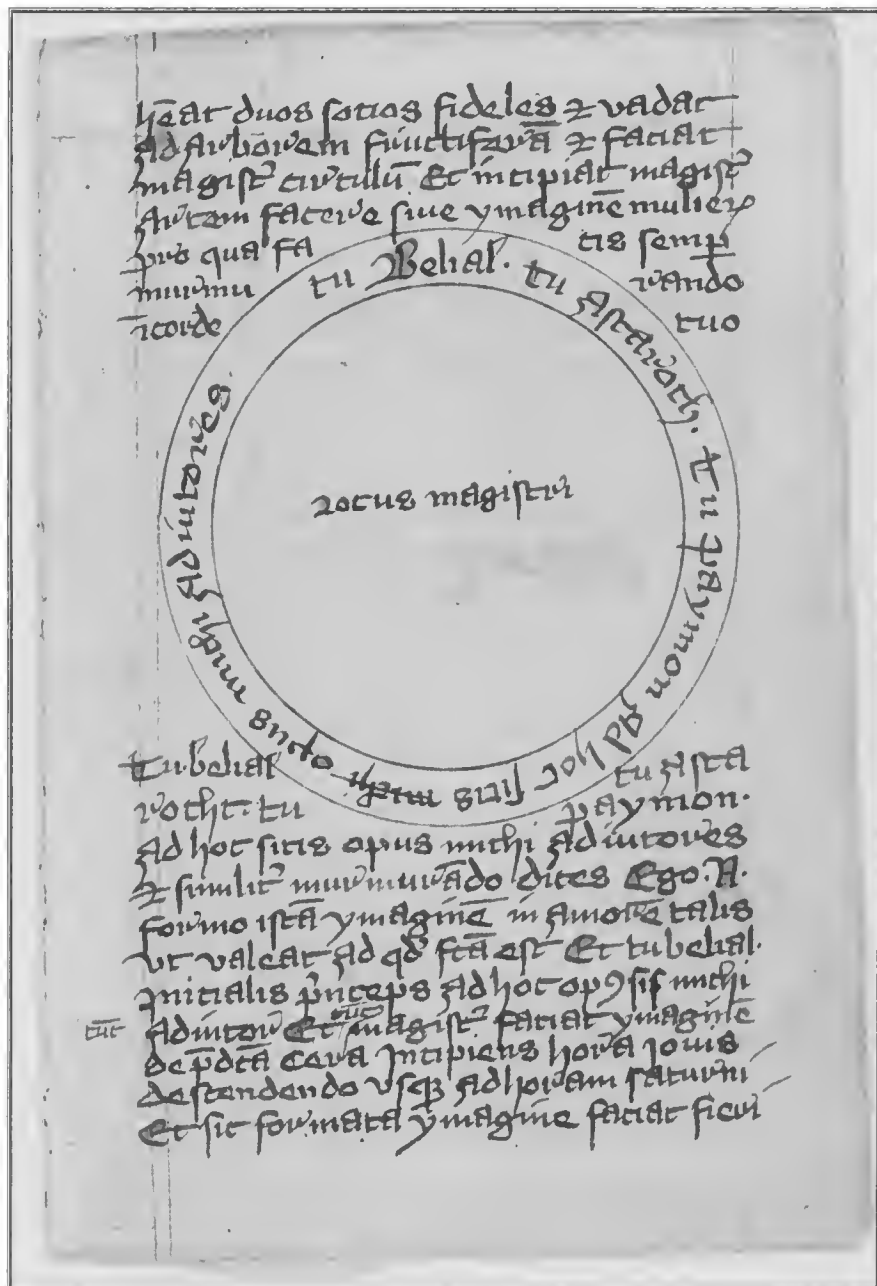 hēat duos sotios fideles et vadat
ad arborem fructiferā et faciat
magistʳ circulū Et incipiat magistʳ
artem facere siue ymaginē mulierꝭ
pro qua fa
tis semꝑ
murmu
rando
ī corde
tuo
tu Belial. tu Astaroth. Tu paymon ad hoc sitis michi opus michi adiutores.
Locus magistri
Tu belial
tu asta
roth: tu
paymon.
ad hoc sitis opus michi adiutores
et similitʳ murmurādo dices Ego .N.
formo istā ymaginē in amorē talis
vt valeat ad qd̄ fc̄ta est Et tu belial.
Inicialis pʳnceps ad hoc opꝰ sis michi
tūc
adiutor Et tūc magistʳ faciat ymaginē
de p̄dc̄ta cera Incipiens hora Iouis
descendendo vsqꝫ ad horam saturni
Et sic formata ymagine faciat fieri